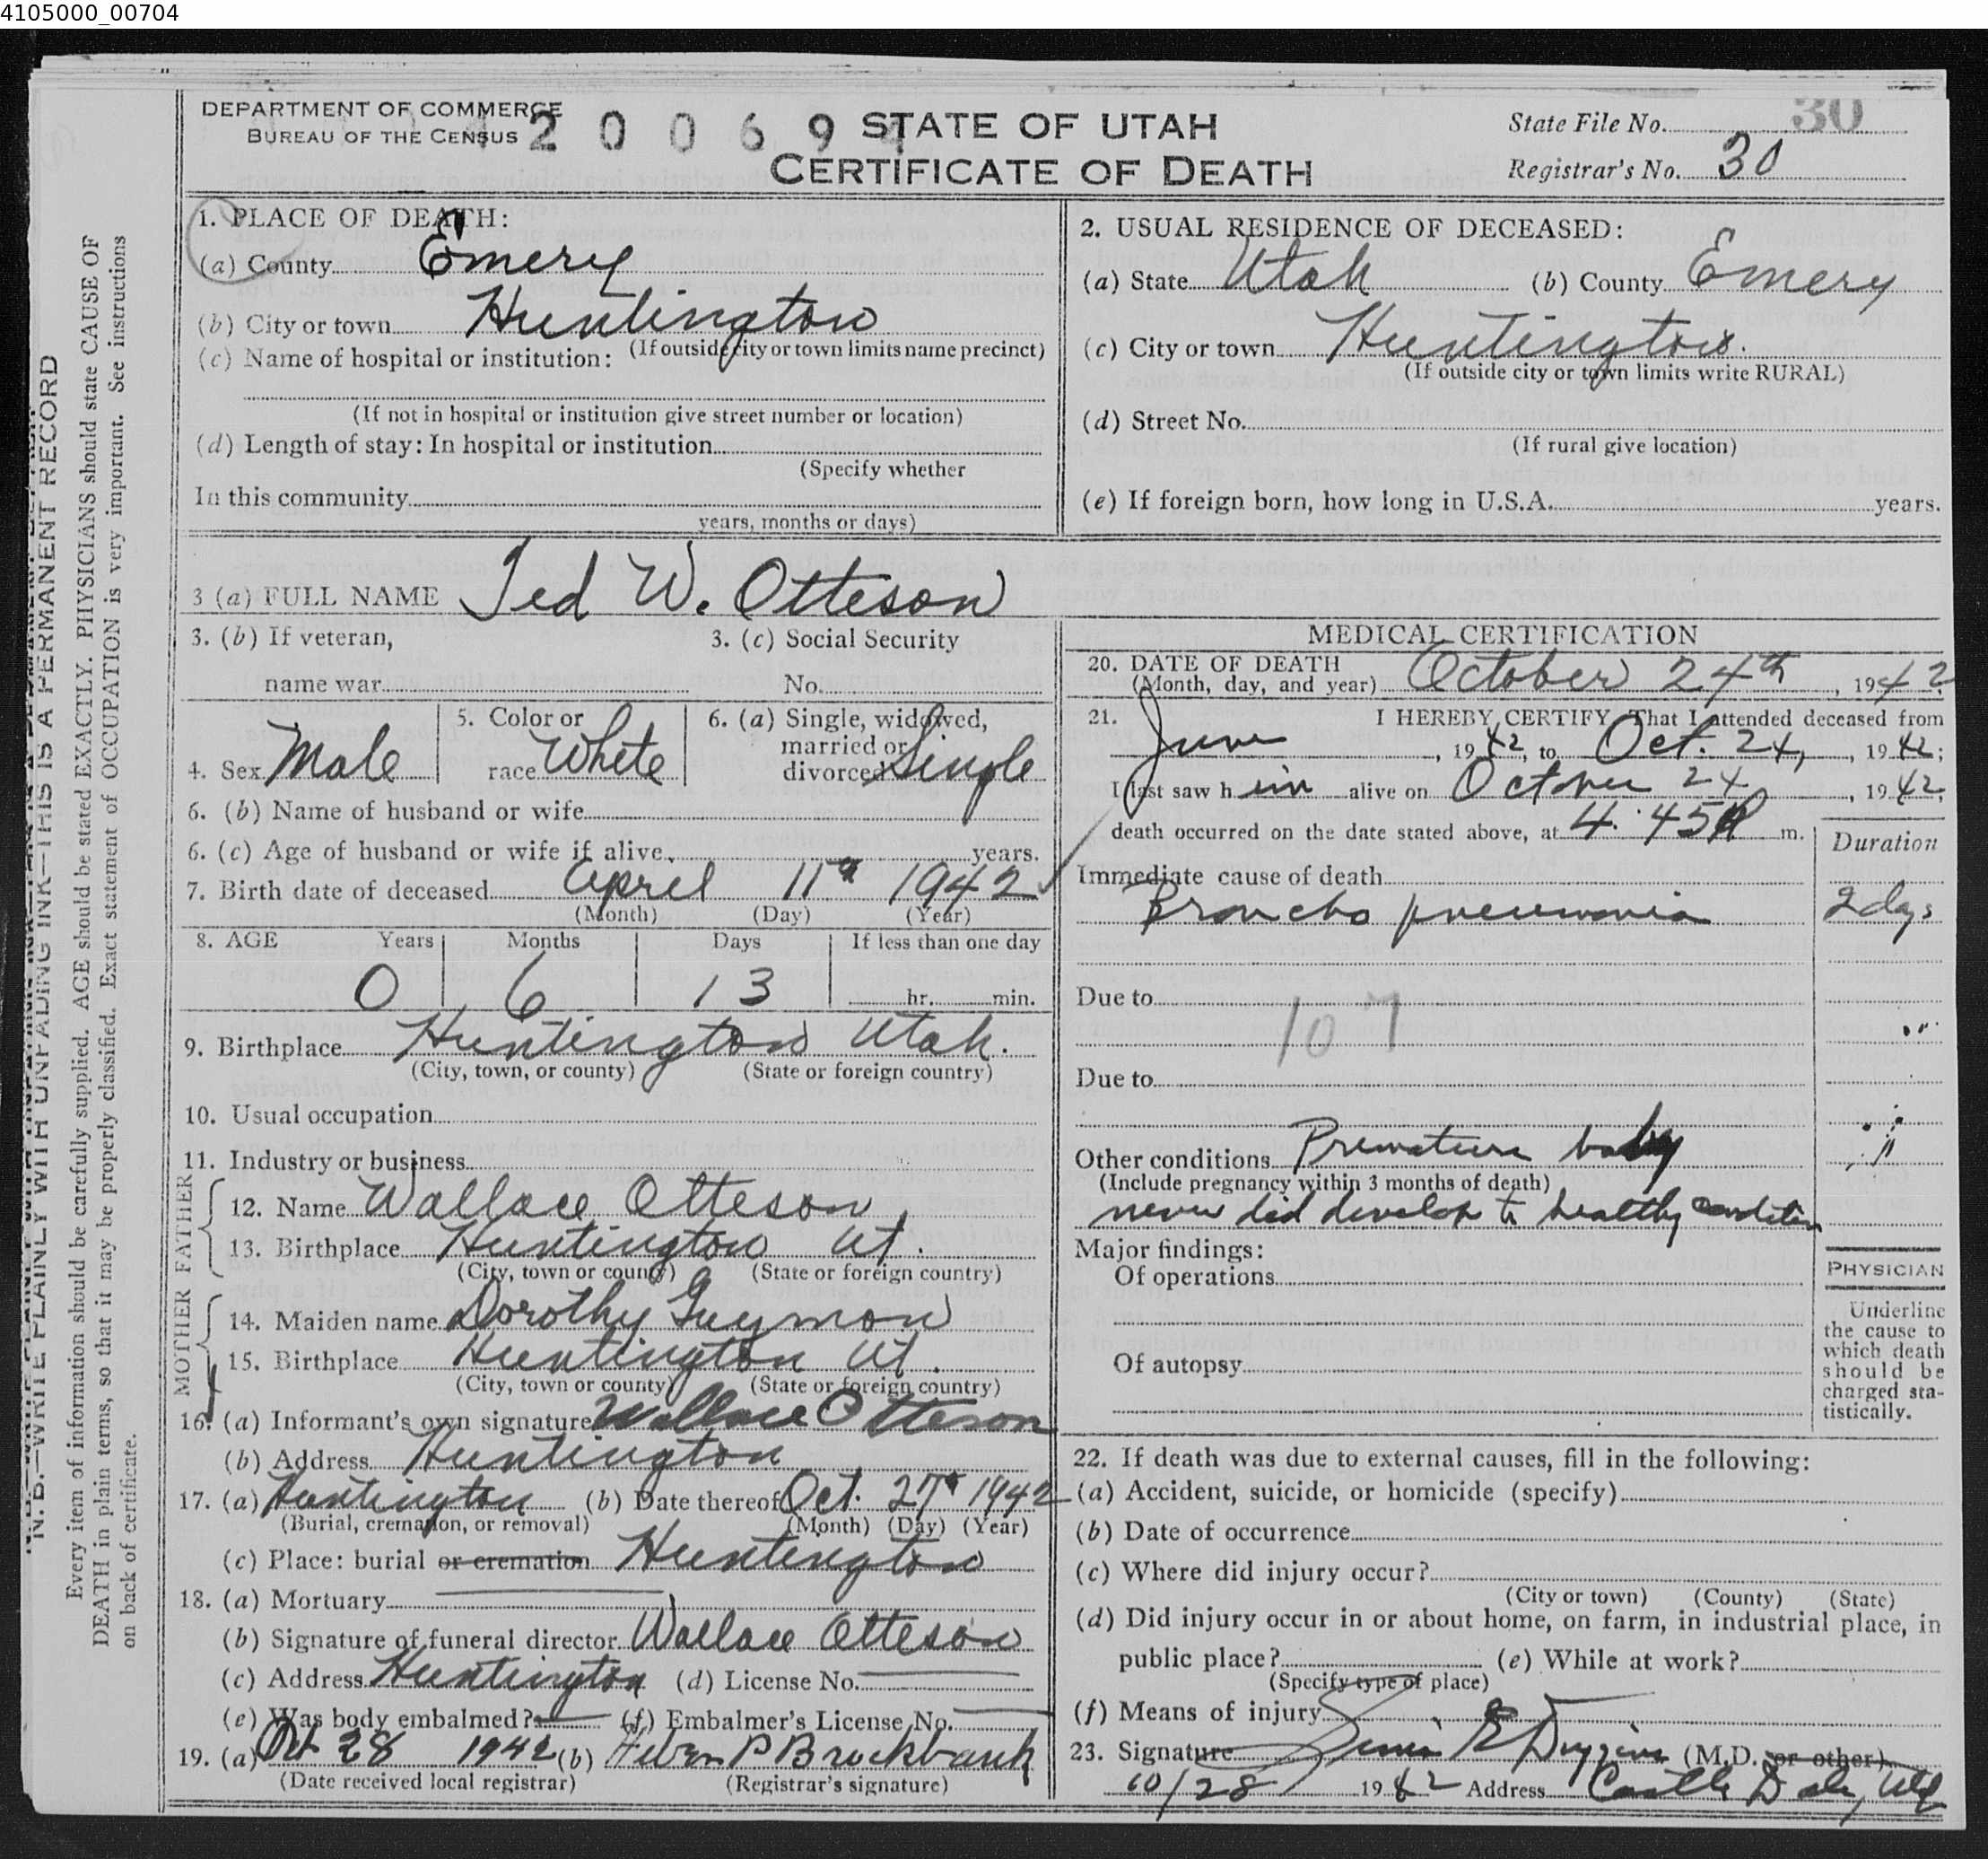 4105000_00704
DEPARTMENT OF COMMERCE
BUREAU OF THE CENSUS
2 0 0 6 9 4
STATE OF UTAH
CERTIFICATE OF DEATH
State File No. 30
Registrar's No. 30
1. PLACE OF DEATH:
(a) County Emery
(b) City or town Huntington
(If outside city or town limits name precinct)
(c) Name of hospital or institution:
(If not in hospital or institution give street number or location)
(d) Length of stay: In hospital or institution
(Specify whether
In this community
years, months or days)
2. USUAL RESIDENCE OF DECEASED:
(a) State Utah (b) County Emery
(c) City or town Huntington.
(If outside city or town limits write RURAL)
(d) Street No.
(If rural give location)
(e) If foreign born, how long in U.S.A. years.
3 (a) FULL NAME Ted W. Otteson
3. (b) If veteran,
name war
3. (c) Social Security
No.
4. Sex Male
5. Color or
race White
6. (a) Single, widowed,
married or
divorced Single
6. (b) Name of husband or wife
6. (c) Age of husband or wife if alive, years.
7. Birth date of deceased April 11th 1942
(Month) (Day) (Year)
8. AGE Years Months Days If less than one day
0 6 13 hr. min.
9. Birthplace Huntington Utah.
(City, town, or county) (State or foreign country)
10. Usual occupation
11. Industry or business
FATHER
12. Name Wallace Otteson
13. Birthplace Huntington Ut.
(City, town or county) (State or foreign country)
MOTHER
14. Maiden name Dorothy Guymon
15. Birthplace Huntington Ut.
(City, town or county) (State or foreign country)
16. (a) Informant's own signature Wallace Otteson
(b) Address Huntington
17. (a) Huntington (b) Date thereof Oct. 27th 1942
(Burial, cremation, or removal) (Month) (Day) (Year)
(c) Place: burial or cremation Huntington
18. (a) Mortuary
(b) Signature of funeral director Wallace Otteson
(c) Address Huntington (d) License No.
(e) Was body embalmed? (f) Embalmer's License No.
19. (a) Oct 28 1942 (b) P Brockbank
(Date received local registrar) (Registrar's signature)
MEDICAL CERTIFICATION
20. DATE OF DEATH
(Month, day, and year) October 24th, 1942
21. I HEREBY CERTIFY, That I attended deceased from
June, 1942, to Oct. 24, 1942;
I last saw him alive on October 24, 1942,
death occurred on the date stated above, at 4:45 P m.
Duration
Immediate cause of death
Broncho pneumonia 2 days
Due to
107
Due to
Other conditions Premature baby
(Include pregnancy within 3 months of death)
never did develop to healthy condition
Major findings:
Of operations
Of autopsy
PHYSICIAN
Underline
the cause to
which death
should be
charged sta-
tistically.
22. If death was due to external causes, fill in the following:
(a) Accident, suicide, or homicide (specify)
(b) Date of occurrence
(c) Where did injury occur?
(City or town) (County) (State)
(d) Did injury occur in or about home, on farm, in industrial place, in
public place? (e) While at work?
(Specify type of place)
(f) Means of injury
23. Signature E Duggins (M.D. or other)
10/28 1942 Address Castle Dale, Ut
N. B.—WRITE PLAINLY WITH UNFADING INK—THIS IS A PERMANENT RECORD
Every item of information should be carefully supplied. AGE should be stated EXACTLY. PHYSICIANS should state CAUSE OF
DEATH in plain terms, so that it may be properly classified. Exact statement of OCCUPATION is very important. See instructions
on back of certificate.